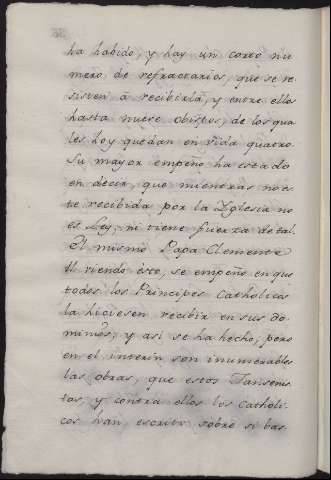 ha habido, y hay un corto nu
mero de refractarios, que se re
sisten â recibirla, y entre ellos
hasta nueve obispos, de los qua
les hoy quedan en vida quatro.
Su mayor empeño ha estado
en decir, que mientras no es
te recibida por la Yglesia no
es Ley, ni tiene fuerza de tal.
El mismo Papa Clemente
XI viendo esto, se empeño en que
todos los Principes Catholicos
la hiciesen recibir en sus do-
minios, y asi se ha hecho, pero
en el interin son innumerables
las obras, que estos Jansenis
tas, y contra ellos los Catholi-
cos han escrito sobre si bas